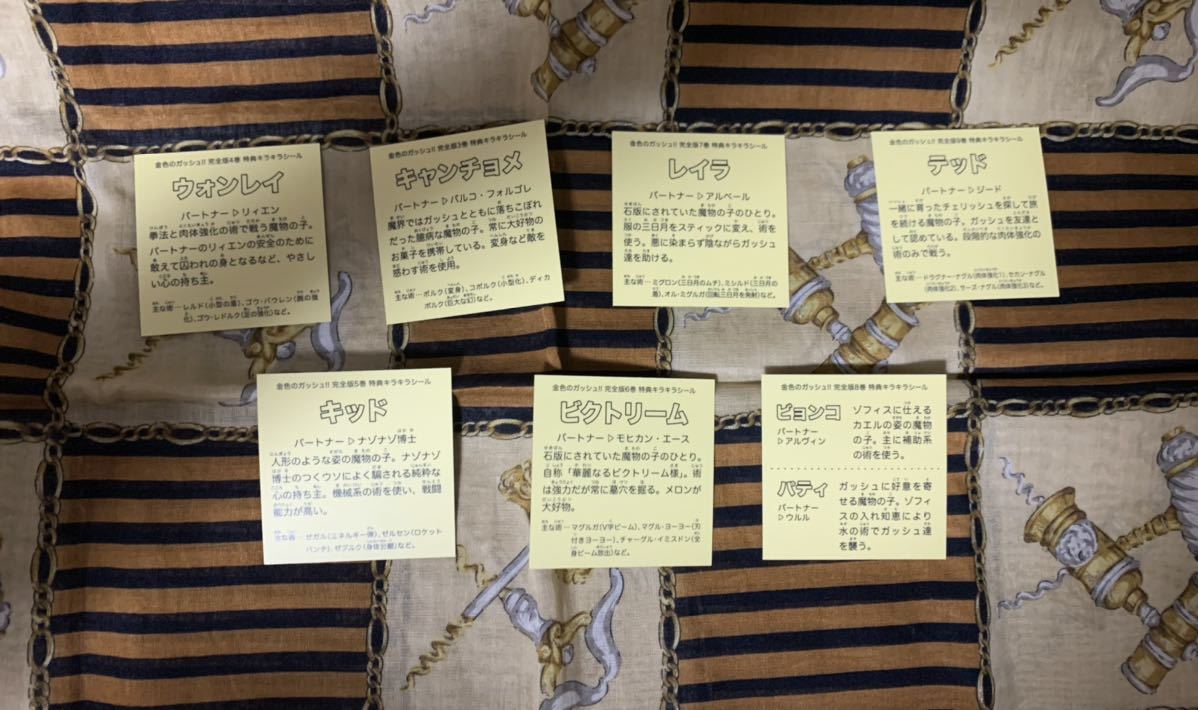 金色のガッシュ!! 完全版4巻 特典キラキラシール
ウォンレイ
パートナー▷リィエン
拳法と肉体強化の術で戦う魔物の子。
パートナーのリィエンの安全のために
敢えて囚われの身となるなど、やさし
い心の持ち主。
主な術…レルド(小型の盾)、ゴウ・バウレン(腕の強
化)、ゴウ・レドルク(足の強化)など。
金色のガッシュ!! 完全版3巻 特典キラキラシール
キャンチョメ
パートナー▷パルコ・フォルゴレ
魔界ではガッシュとともに落ちこぼれ
だった臆病な魔物の子。常に大好物の
お菓子を携帯している。変身など敵を
惑わす術を使用。
主な術…ポルク(変身)、コポルク(小型化)、ディカ
ポルク(巨大な幻)など。
金色のガッシュ!! 完全版7巻 特典キラキラシール
レイラ
パートナー▷アルベール
石版にされていた魔物の子のひとり。
服の三日月をスティックに変え、術を
使う。悪に染まらず陰ながらガッシュ
達を助ける。
主な術…ミグロン(三日月のムチ)、ミシルド(三日月の
盾)、オル・ミグルガ(回転三日月を発射)など。
金色のガッシュ!! 完全版9巻 特典キラキラシール
テッド
パートナー▷ジード
一緒に育ったチェリッシュを探して旅
を続ける魔物の子。ガッシュを友達と
して認めている。段階的な肉体強化の
術のみで戦う。
主な術…ドラグナー・ナグル(肉体強化1)、セカン・ナグル
(肉体強化2)、サーズ・ナグル(肉体強化3)など。
金色のガッシュ!! 完全版5巻 特典キラキラシール
キッド
パートナー▷ナゾナゾ博士
人形のような姿の魔物の子。ナゾナゾ
博士のつくウソによく騙される純粋な
心の持ち主。機械系の術を使い、戦闘
能力が高い。
主な術…ゼガル(エネルギー弾)、ゼルセン(ロケット
パンチ)、ザブルク(身体分離)など。
金色のガッシュ!! 完全版6巻 特典キラキラシール
ビクトリーム
パートナー▷モヒカン・エース
石版にされていた魔物の子のひとり。
自称「華麗なるビクトリーム様」。術
は強力だが常に墓穴を掘る。メロンが
大好物。
主な術…マグルガ(V字ビーム)、マグル・ヨーヨー(刃
付きヨーヨー)、チャーグル・イミスドン(全
身ビーム放出)など。
金色のガッシュ!! 完全版8巻 特典キラキラシール
ピョンコ
パートナー
▷アルヴィン
ゾフィスに仕える
カエルの姿の魔物
の子。主に補助系
の術を使う。
パティ
パートナー
▷ウルル
ガッシュに好意を寄
せる魔物の子。ゾフィ
スの入れ知恵により
水の術でガッシュ達
を襲う。